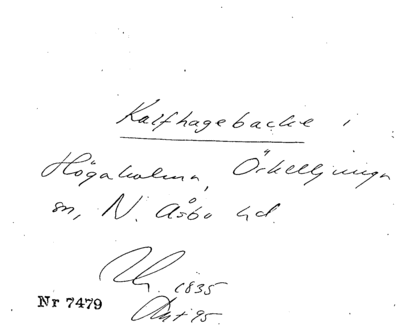 Kalfhagebacke i
Högaholma, Örkelljunga
sn, N. Åsbo hd.
1835
Nr 7479